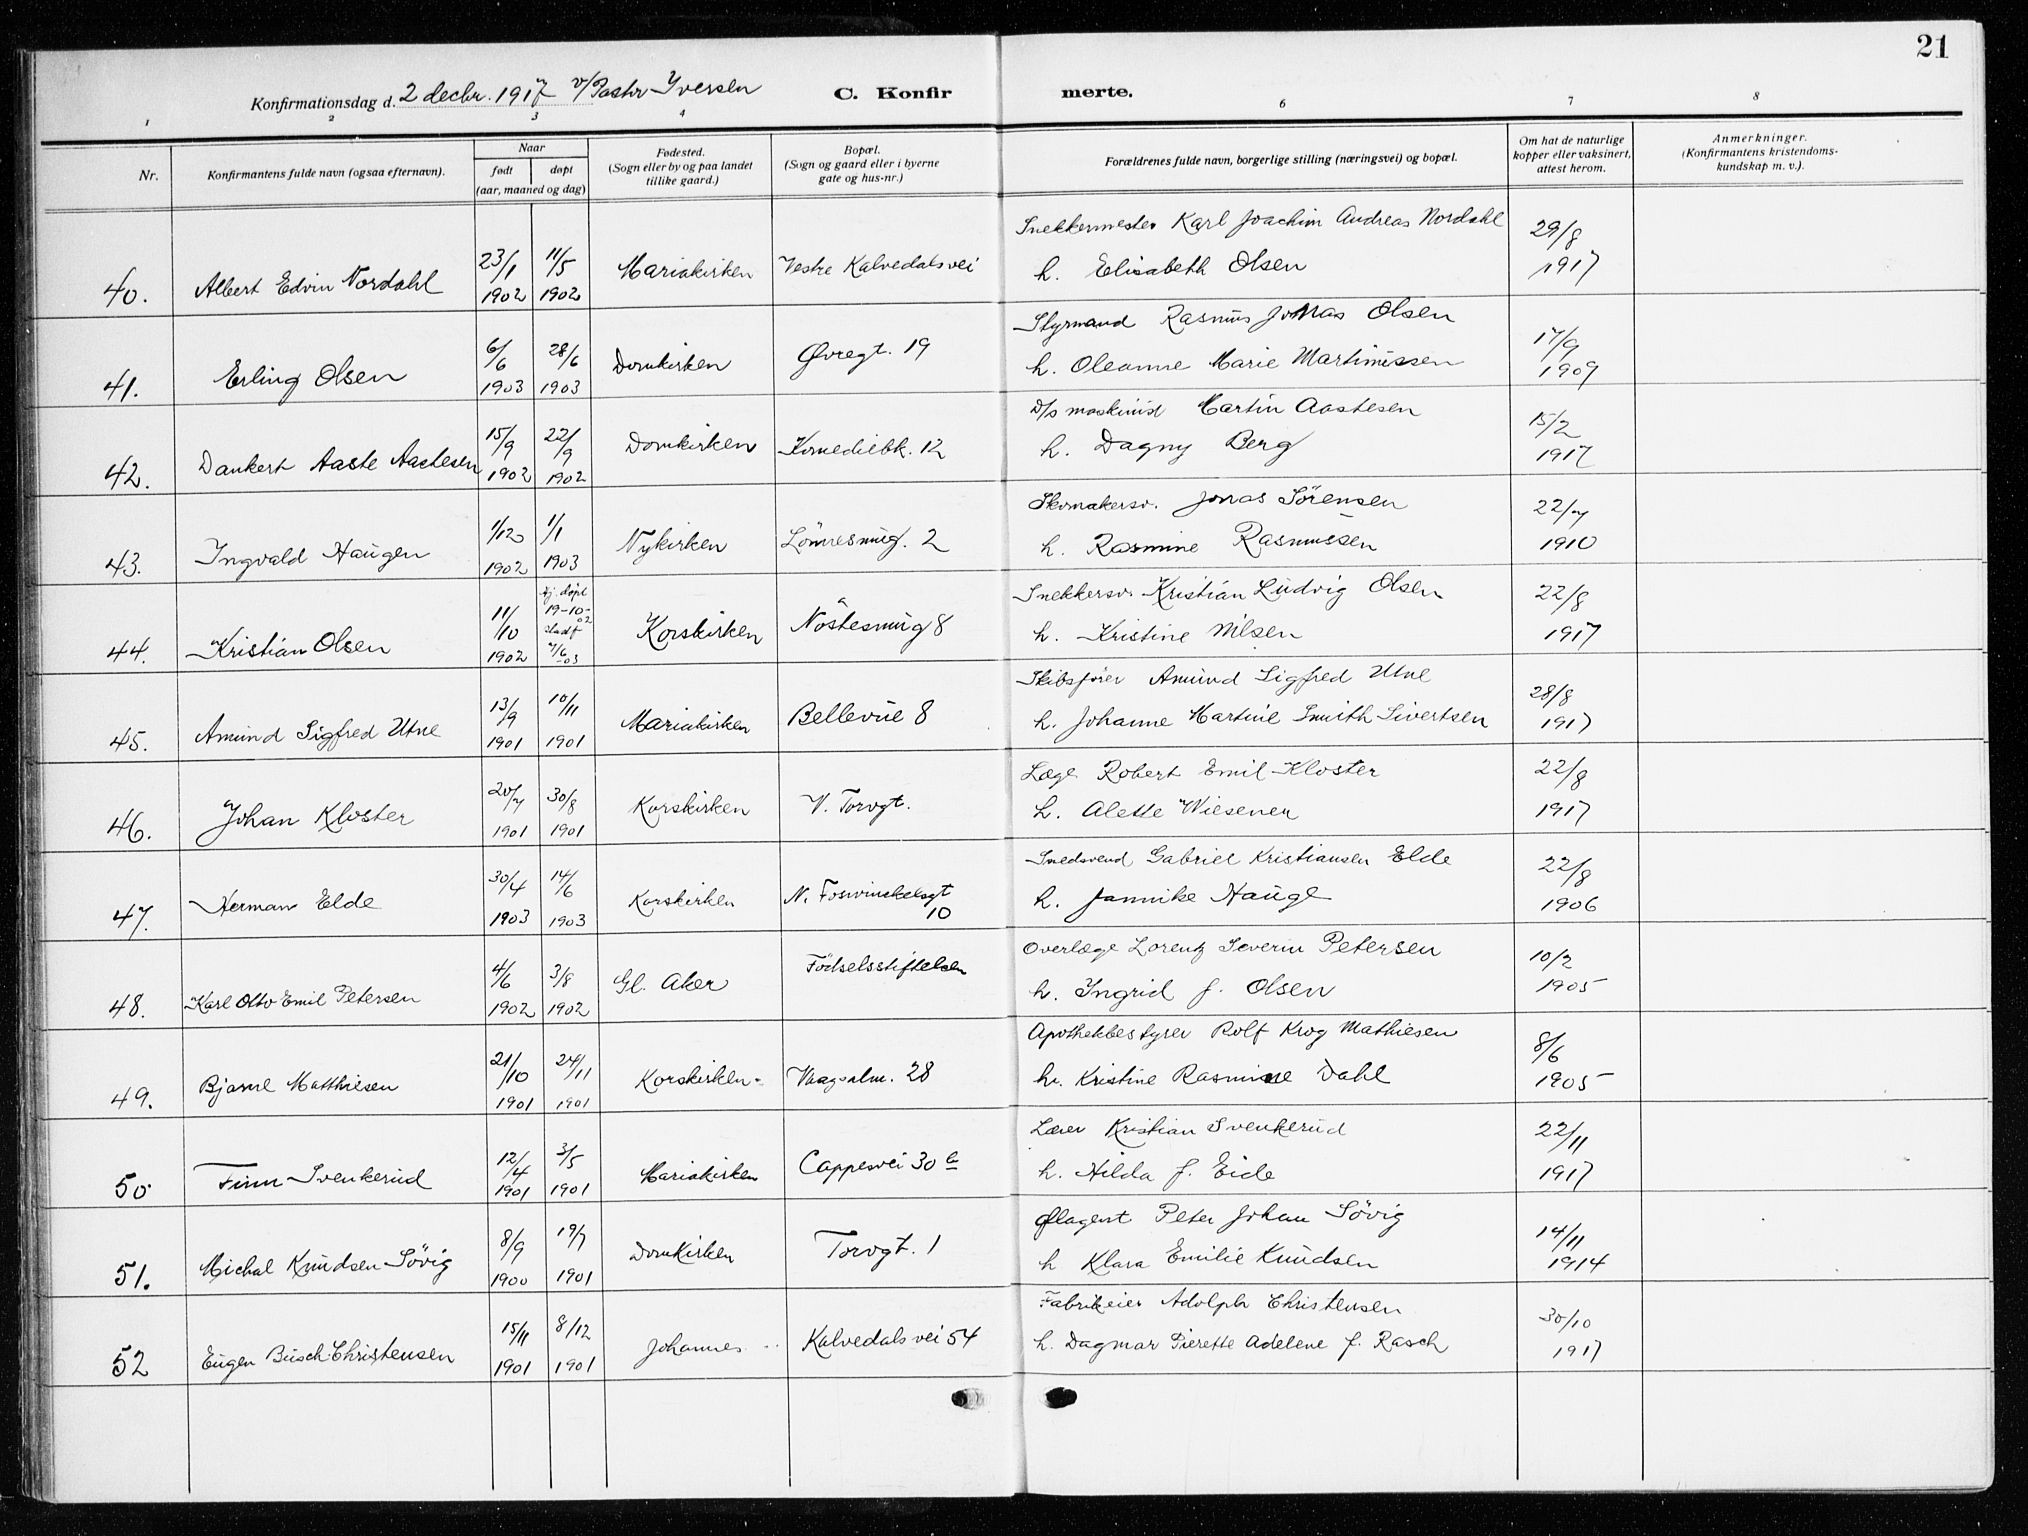 21
Konfirmationsdag d. 2 decbr. 1917 v/Pastor Iversen C. Konfirmerte.
1 2 3 4 6 7 8
Nr.
Konfirmantens fulde navn (ogsaa efternavn).
Naar
født døpt
(aar, maaned og dag)
Fødested.
(Sogn eller by og paa landet
tillike gaard.)
Bopæl.
(Sogn og gaard eller i byerne
gate og hus-nr.)
Forældrenes fulde navn, borgerlige stilling (næringsvei) og bopæl.
Om hat de naturlige
kopper eller vaksinert,
attest herom.
Anmerkninger.
(Konfirmantens kristendoms-
kundskap m. v.).
Snekkermester Karl Joachim Andreas Nordahl
40. Albert Edvin Nordahl 23/1 1902 11/5 1902 Mariakirken Vestre Kalvedalsvei h. Elisabeth Olsen 29/8 1917
Styrmand Rasmus Jonas Olsen
41. Erling Olsen 6/6 1903 28/6 1903 Domkirken Øvregt. 19 h. Oleanne Marie Martinussen 17/9 1909
D/s maskinist Martin Aastesen
42. Dankert Aaste Aastesen 15/9 1902 22/9 1902 Domkirken Komediebk. 12 h. Dagny Berg 15/2 1917
Skomakersv. Jonas Sörensen
43. Ingvald Haugen 1/12 1902 1/1 1903 Nykirken Lönnesmug. 2 h. Rasmine Rasmussen 22/7 1910
Snekkersv. Kristian Ludvig Olsen
44. Kristian Olsen 11/10 1902 hj. döpt 19-10-02 stadf 7/6-03 Korskirken Nöstesmug 8 h. Kristine Nilsen 22/8 1917
Skibsfører Amund Sigfred Utne
45. Amund Sigfred Utne 13/9 1901 10/11 1901 Mariakirken Bellevue 8 h. Johanne Martine Smith Sivertsen 28/8 1917
Læge Robert Emil Kloster
46. Johan Kloster 20/7 1901 30/8 1901 Korskirken V. Torvgt. h. Alette Wiesener 22/8 1917
Smedsvend Gabriel Kristiansen Elde
47. Herman Elde 30/4 1903 14/6 1903 Korskirken N. Foswinckelsgt 10 h. Jannike Hauge 22/8 1906
Overlæge Lorentz Severin Petersen
48. Karl Otto Emil Petersen 4/6 1902 3/8 1902 Gl. Aker Födselsstiftelsen h. Ingrid f. Olsen 10/2 1905
Apothekbestyrer Rolf Krog Mathiesen
49. Bjarne Matthiesen 21/10 1901 24/11 1901 Korskirken Vaagsalm. 28 h. Kristine Rasmine Dahl 8/6 1905
Lærer Kristian Svenkerud
50 Finn Svenkerud 12/4 1901 3/5 1901 Mariakirken Cappesvei 30 a h. Hilda f. Eide 22/11 1917
Ølagent Peter Johan Sövig
51. Michal Knudsen Sövig 8/9 1900 19/7 1901 Domkirken Torvgt. 1 h Klara Emilie Knudsen 14/11 1914
Fabrikeier Adolph Christensen
52 Eugen Busch Christensen 15/11 1901 8/12 1901 Johannes Kalvedalsvei 54 h. Dagmar Pierette Adelene f. Rasch 30/10 1917